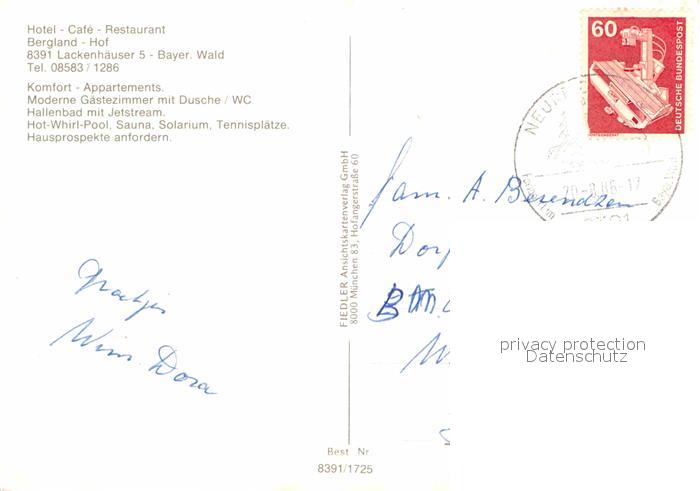 Hotel - Café - Restaurant
Bergland - Hof
8391 Lackenhäuser 5 - Bayer. Wald
Tel. 08583 / 1286
Komfort - Appartements.
Moderne Gästezimmer mit Dusche / WC
Hallenbad mit Jetstream.
Hot-Whirl-Pool, Sauna, Solarium, Tennisplätze.
Hausprospekte anfordern.
Groetjes
Wim. Dora
FIEDLER Ansichtskartenverlag GmbH
8000 München 83, Hofangerstraße 60
Best Nr
8391/1725
60
DEUTSCHE BUNDESPOST
20-8.86-17
Fam. A. Berendsen
privacy protection
Datenschutz